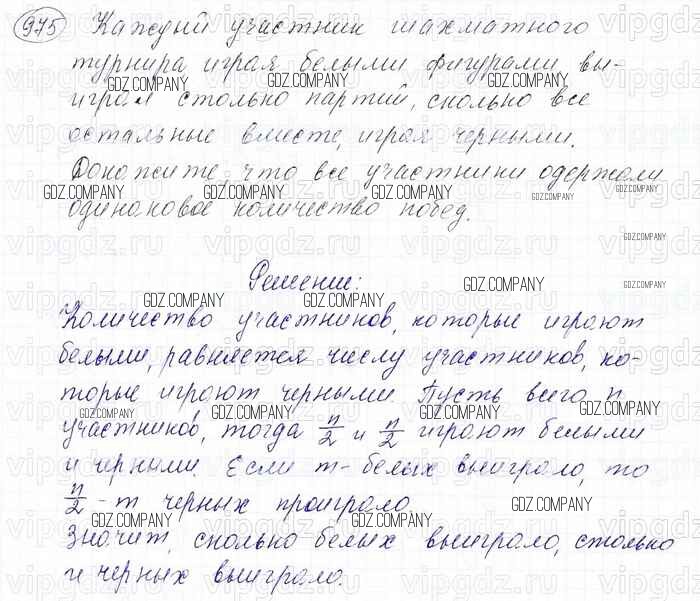 975 Каждый участник шахматного
турнира играя белыми фигурами вы-
играл столько партий, сколько все
остальные вместе, играя черными.
Докажите, что все участники одержали
одинаковое количество побед.
Решение:
Количество участников, которые играют
белыми, равняется числу участников, ко-
торые играют черными. Пусть всего n
участников, тогда n/2 и n/2 играют белыми
и черными. Если m - белых выиграло, то
n/2 - m черных проиграло
Значит, сколько белых выиграло, столько
и черных выиграло.